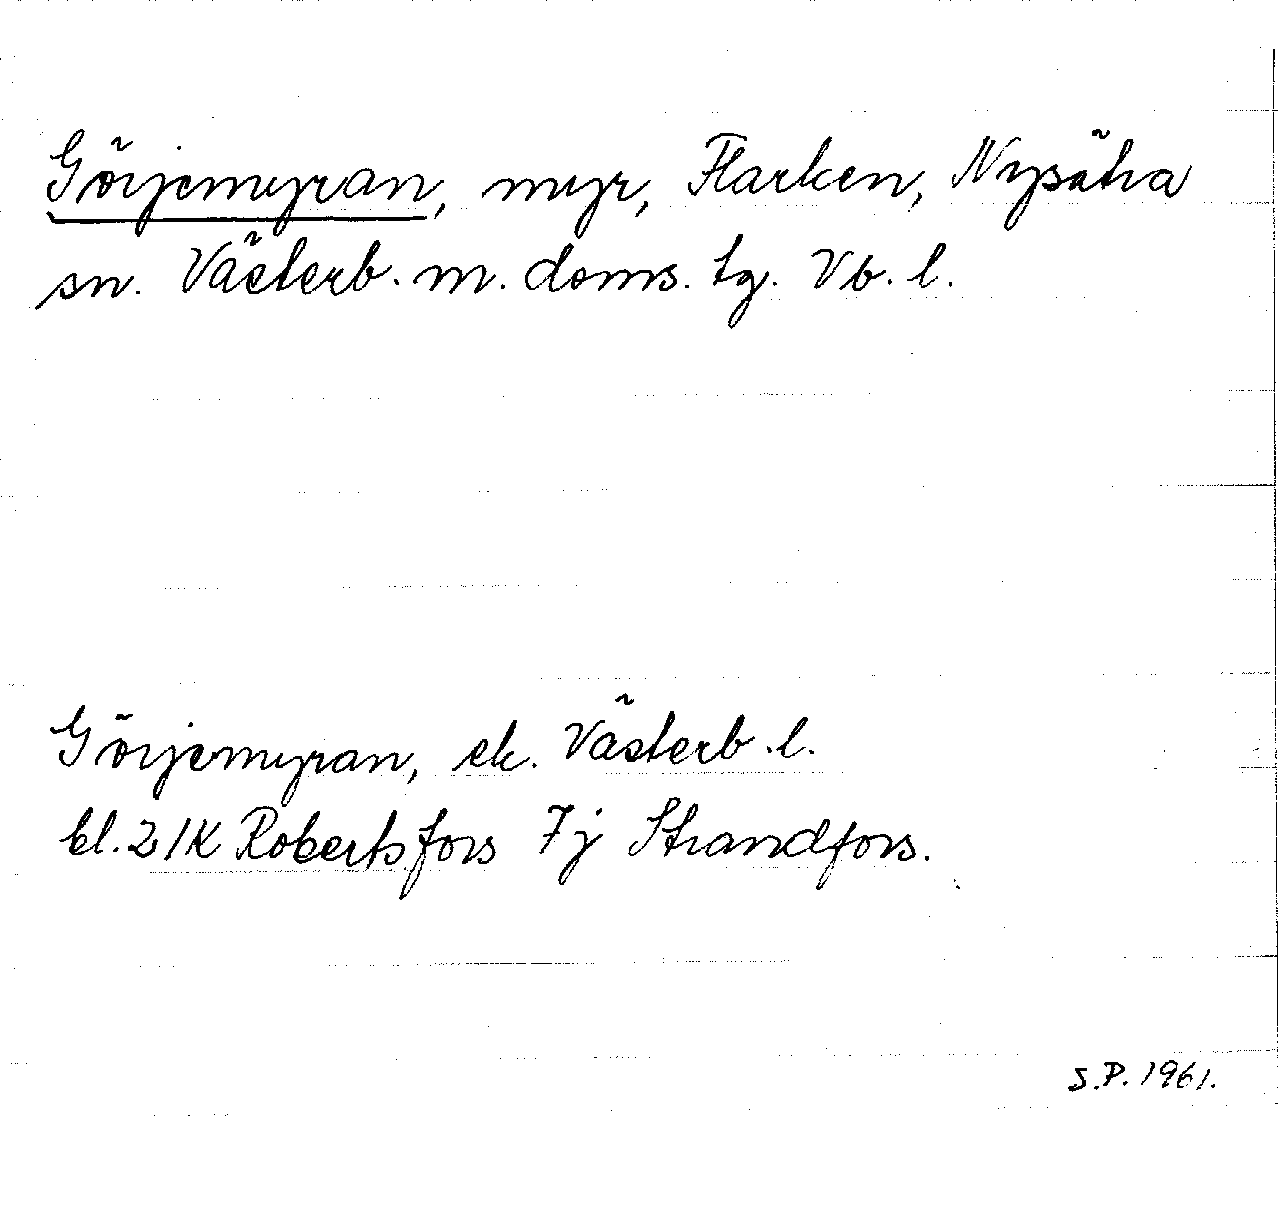 Görjemyran, myr, Flarken, Nysätra
sn. Västerb. m. doms. tg. Vb. l.
Görjemyran, ek. Västerb. l.
bl. 21K Robertsfors 7j Strandfors.
S.P. 1961.